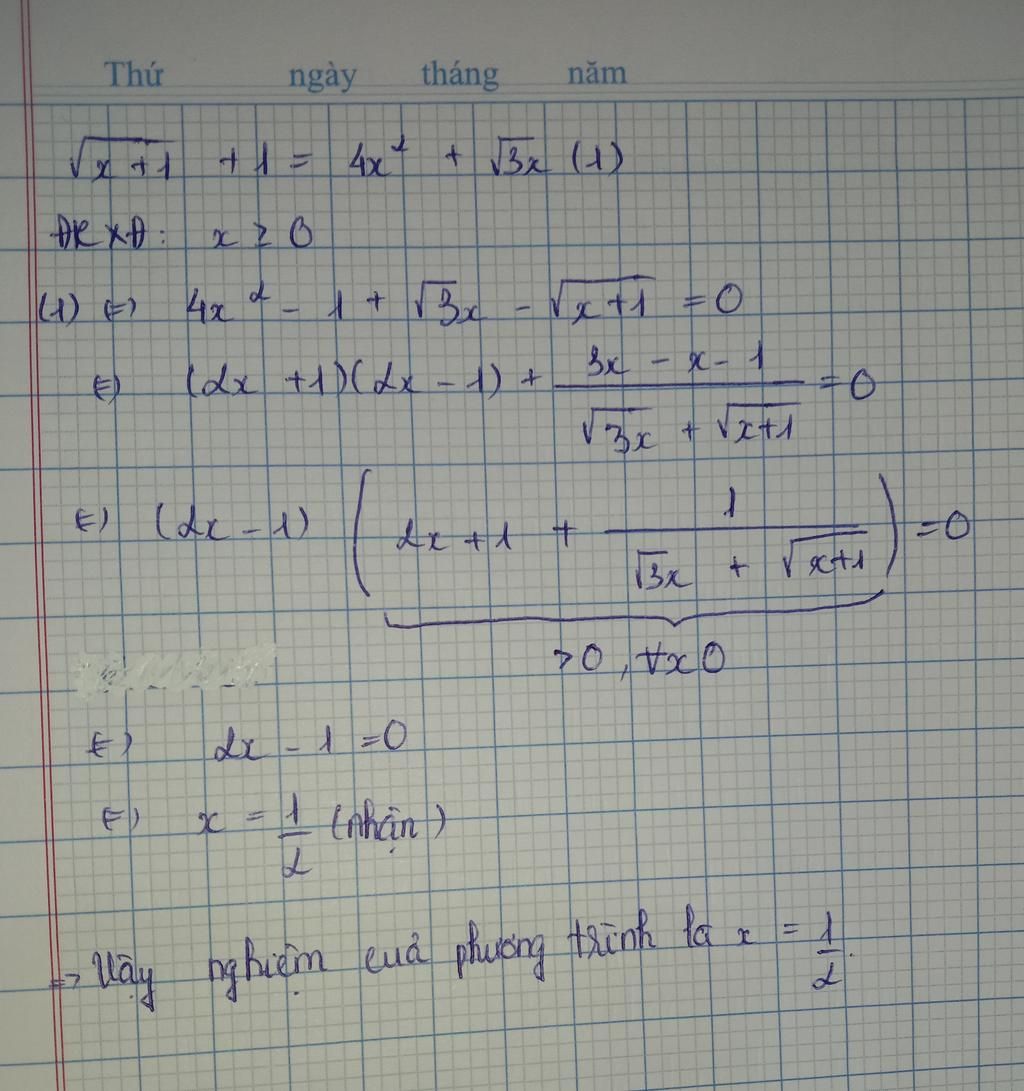 Thứ ngày tháng năm
√(x+1) + 1 = 4x² + √3x (1)
ĐKXĐ: x ≥ 0
(1) ⇔ 4x² - 1 + √3x - √(x+1) = 0
⇔ (2x + 1)(2x - 1) + (3x - x - 1)/(√3x + √(x+1)) = 0
⇔ (2x - 1) (2x + 1 + 1/(√3x + √(x+1))) = 0
>0, ∀x 0
⇔ 2x - 1 = 0
⇔ x = 1/2 (nhận)
=> Vậy nghiệm cuả phương trình là x = 1/2.